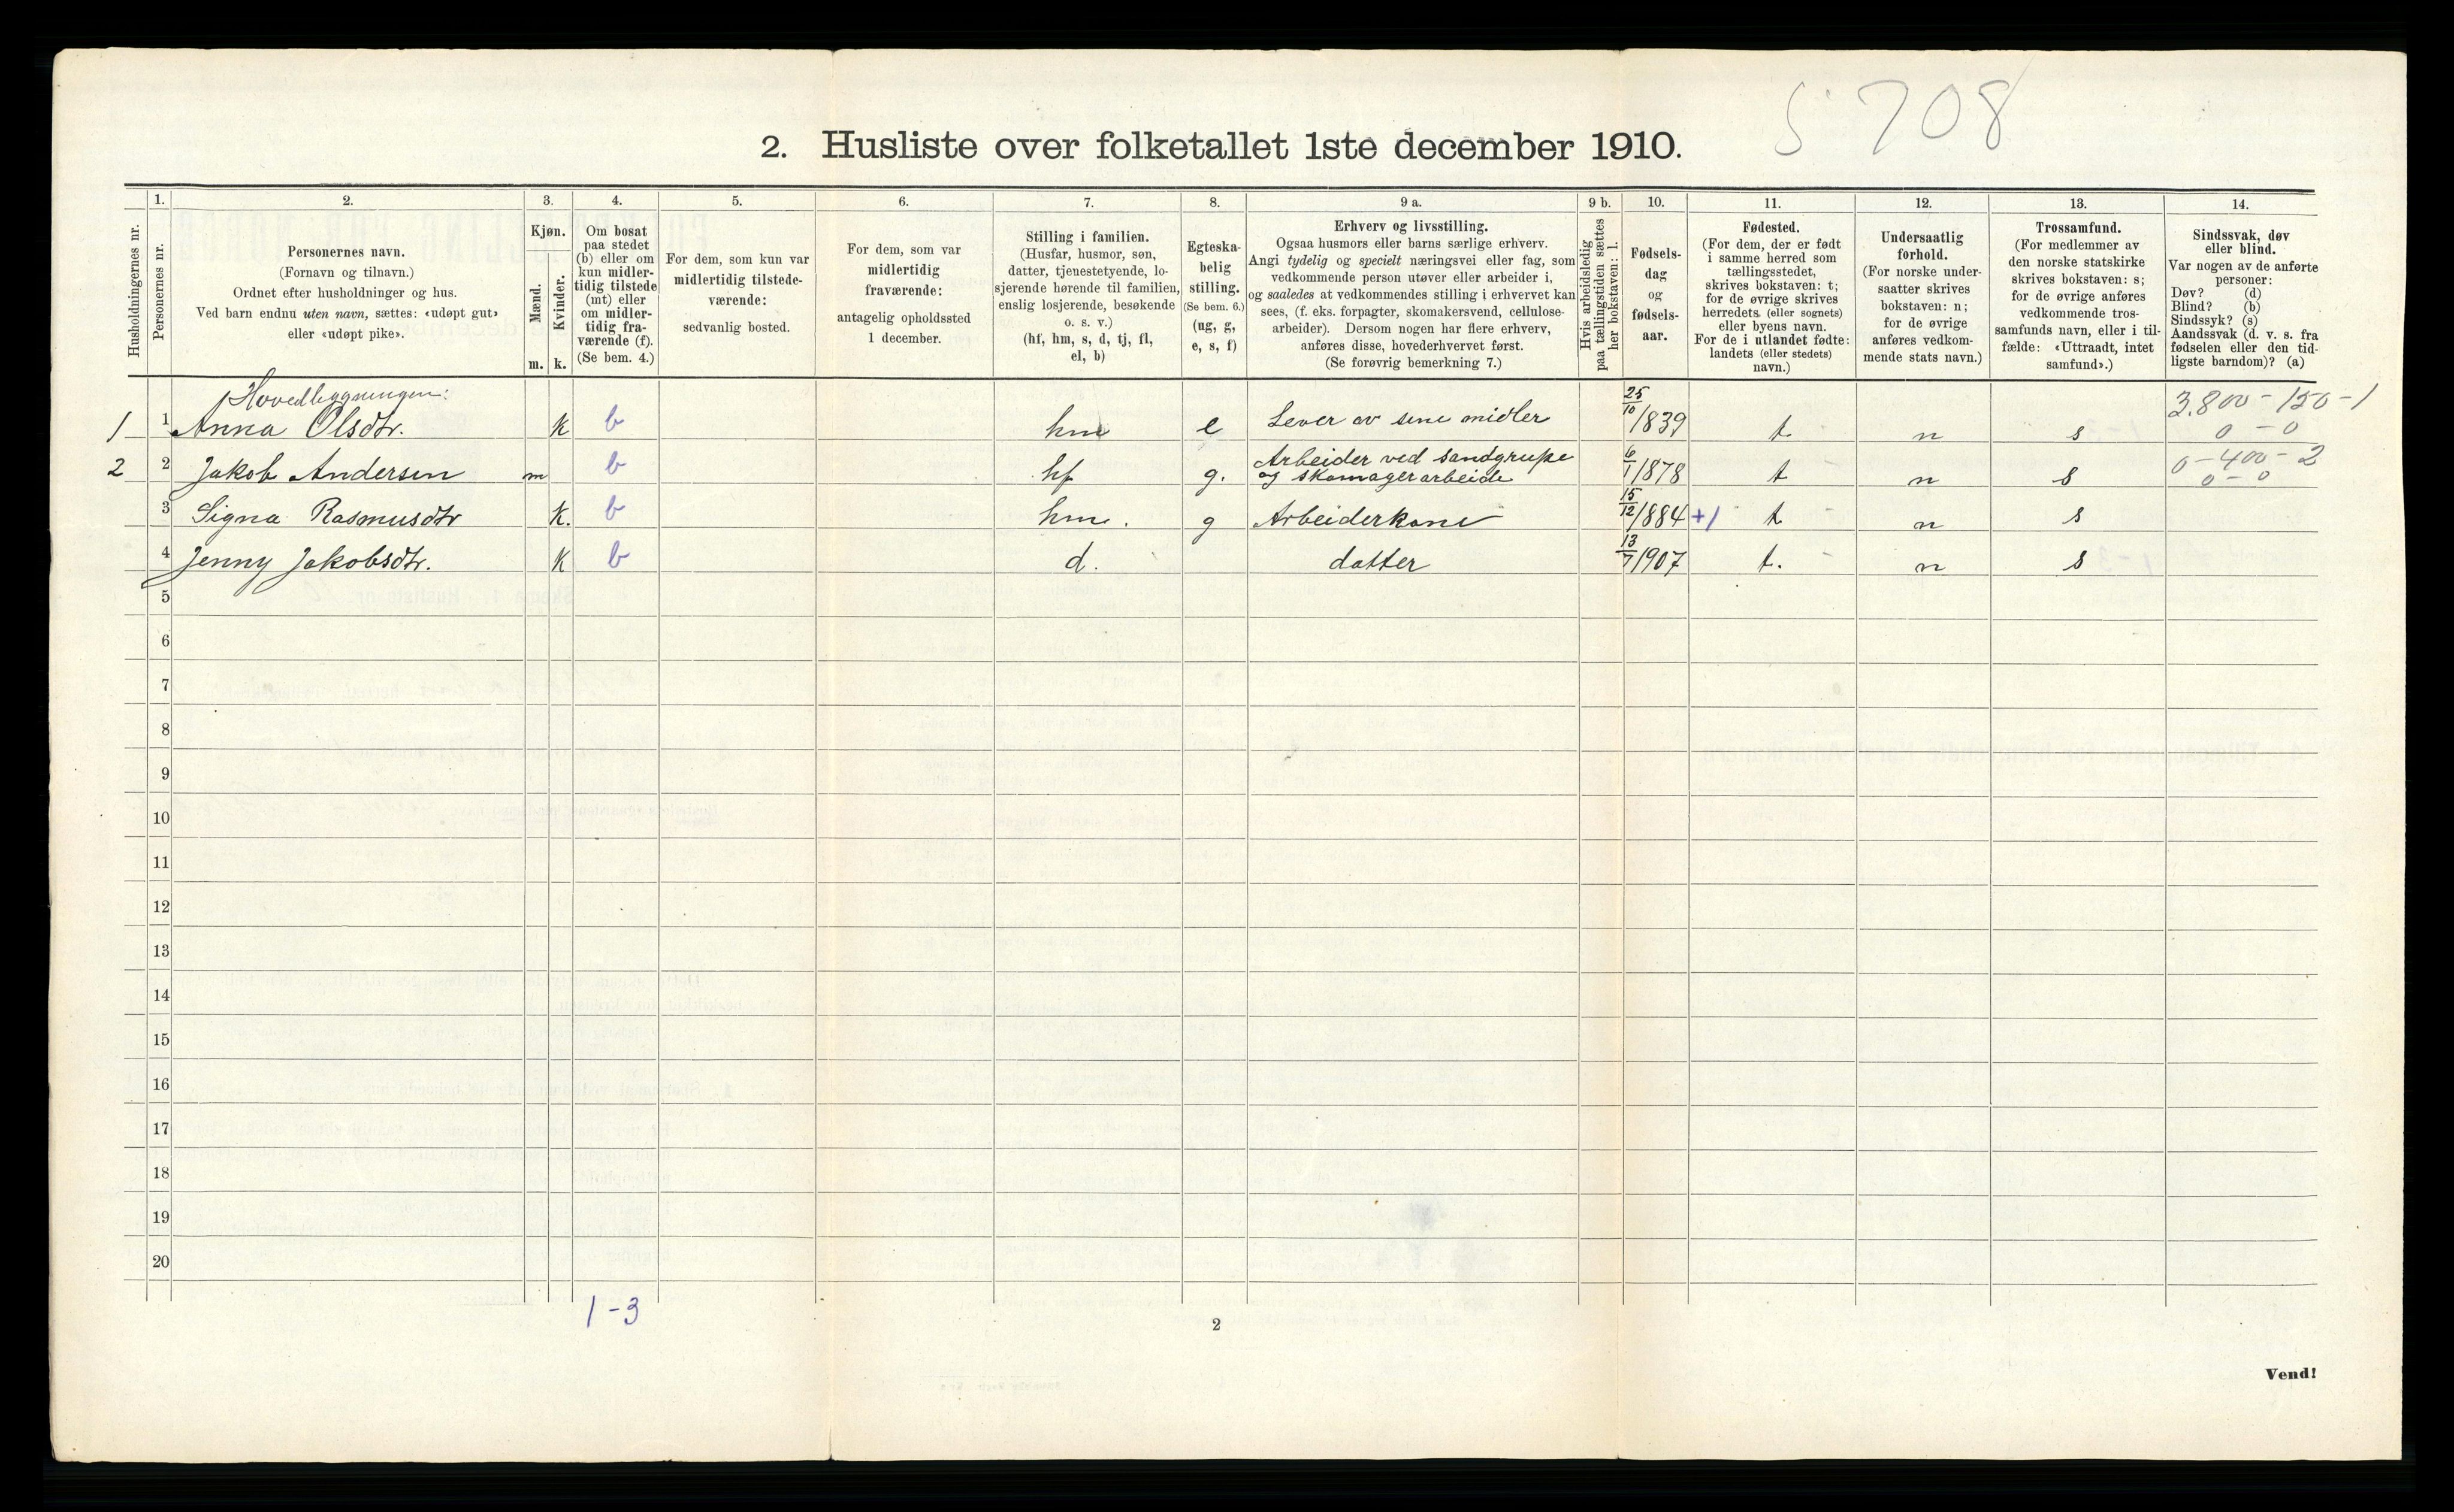 5 708
2. Husliste over folketallet 1ste december 1910.
Husholdningernes nr.
1.
Personernes nr.
2.
Personernes navn.
(Fornavn og tilnavn.)
Ordnet efter husholdninger og hus.
Ved barn endnu uten navn, sættes: «udøpt gut»
eller «udøpt pike».
3.
Kjøn.
Mænd.
Kvinder.
m. k.
4.
Om bosat
paa stedet
(b) eller om
kun midler-
tidig tilstede
(mt) eller
om midler-
tidig fra-
værende (f).
(Se bem. 4.)
5.
For dem, som kun var
midlertidig tilstede-
værende:
sedvanlig bosted.
6.
For dem, som var
midlertidig
fraværende:
antagelig opholdssted
1 december.
7.
Stilling i familien.
(Husfar, husmor, søn,
datter, tjenestetyende, lo-
sjerende hørende til familien,
enslig losjerende, besøkende
o. s. v.)
(hf, hm, s, d, tj, fl,
el, b)
8.
Egteska-
belig
stilling.
(Se bem. 6.)
(ug, g,
e, s, f)
9 a.
Erhverv og livsstilling.
Ogsaa husmors eller barns særlige erhverv.
Angi tydelig og specielt næringsvei eller fag, som
vedkommende person utøver eller arbeider i,
og saaledes at vedkommendes stilling i erhvervet kan
sees, (f. eks. forpagter, skomakersvend, cellulose-
arbeider). Dersom nogen har flere erhverv,
anføres disse, hovederhvervet først.
(Se forøvrig bemerkning 7.)
9 b.
Hvis arbeidsledig
paa tællingstiden sættes
her bokstaven: l.
10.
Fødsels-
dag
og
fødsels-
aar.
11.
Fødested.
(For dem, der er født
i samme herred som
tællingsstedet,
skrives bokstaven: t;
for de øvrige skrives
herredets (eller sognets)
eller byens navn.
For de i utlandet fødte:
landets (eller stedets)
navn.)
12.
Undersaatlig
forhold.
(For norske under-
saatter skrives
bokstaven: n;
for de øvrige
anføres vedkom-
mende stats navn.)
13.
Trossamfund.
(For medlemmer av
den norske statskirke
skrives bokstaven: s;
for de øvrige anføres
vedkommende tros-
samfunds navn, eller i til-
fælde: «Uttraadt, intet
samfund».)
14.
Sindssvak, døv
eller blind.
Var nogen av de anførte
personer:
Døv? (d)
Blind? (b)
Sindssyk? (s)
Aandssvak (d. v. s. fra
fødselen eller den tid-
ligste barndom)? (a)
Hovedbygningen:
1 1 Anna Olsdtr. K b hm e Lever av sine midler 25/10/1839 t n s 3.800 - 150 - 1
0 - 0
2 2 Jakob Andersen m b hf g. Arbeider ved sandgrupe
og skomagerarbeide 6/1/1878 t n s 0 - 400 - 2
0 - 0
3 Signa Rasmusdtr K. b hm. g Arbeiderkone 15/12/1884 +1 t n s
4 Jenny Jakobsdtr. K b d. datter 13/7/1907 t. n s
5
6
7
8
9
10
11
12
13
14
15
16
17
18
19
20
1 - 3
2
Vend!